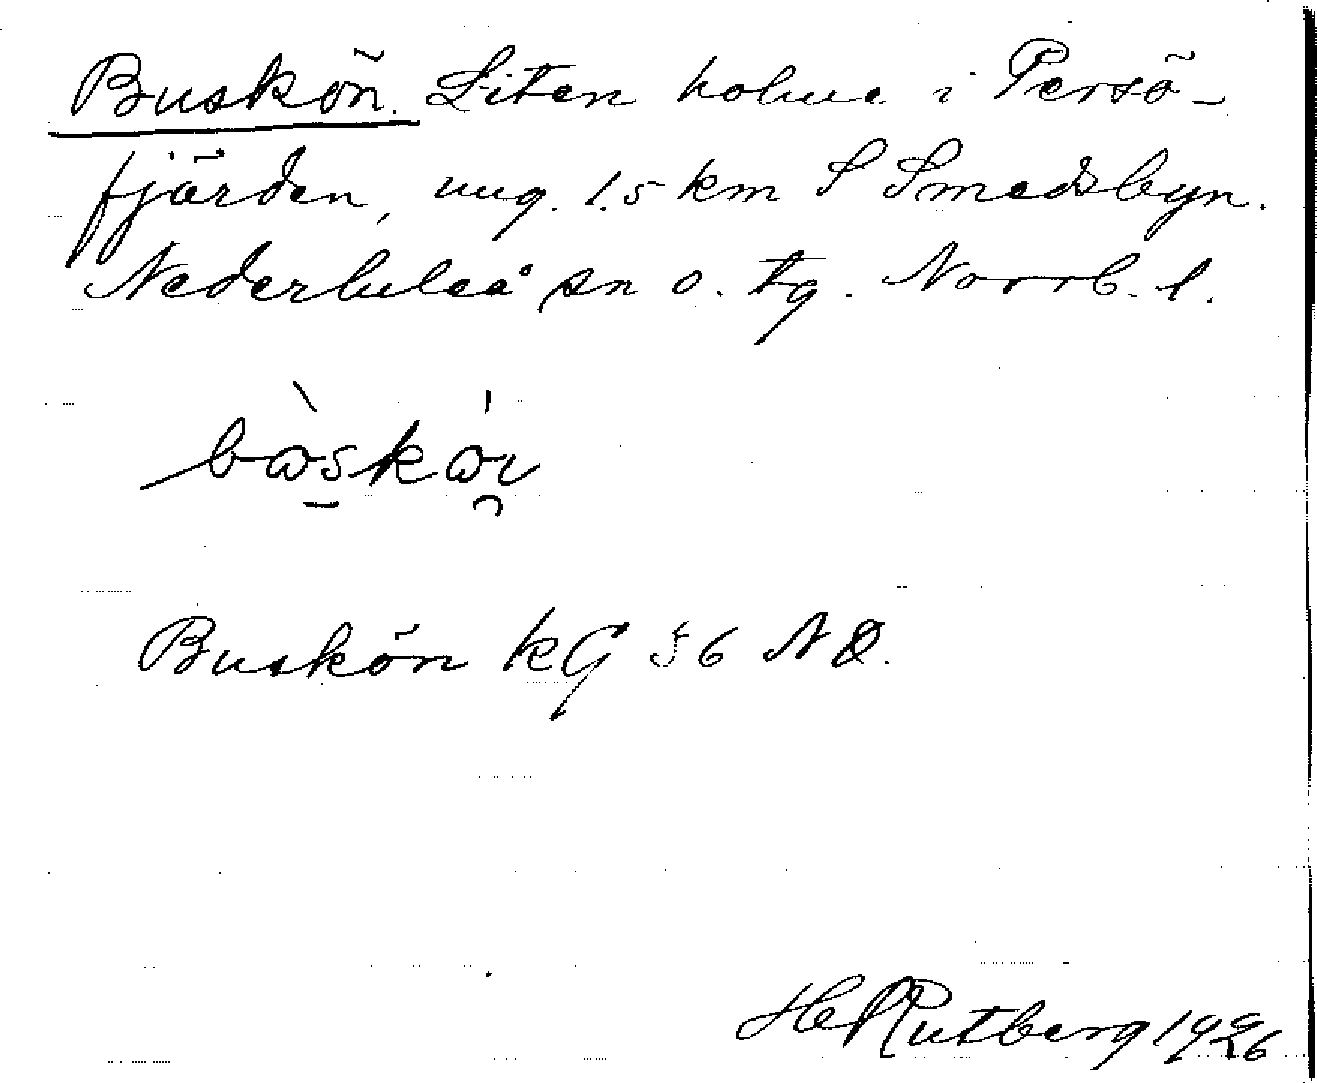 Buskön. Liten holme i Persö-
fjärden, ung. 1.5 km S Smedsbyn.
Nederluleå sn o. tg. Norrb. l.
Buskön KG 56 NO.
H Rutberg 1926